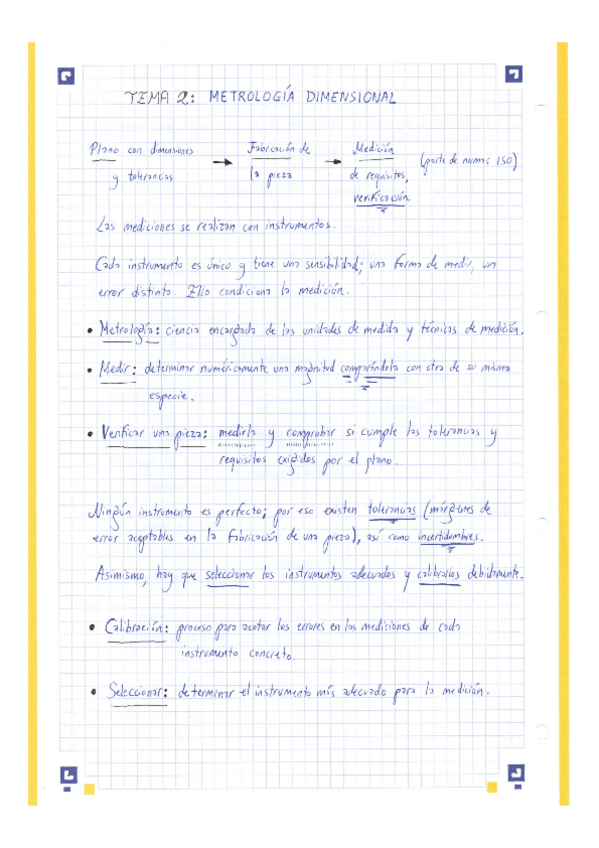 TEMA 2: METROLOGÍA DIMENSIONAL
Plano con dimensiones → Fabricación de → Medición (parte de numas ISO)
y tolerancias la pieza de requisitos,
verificación
Las mediciones se realizan con instrumentos.
Cada instrumento es único y tiene una sensibilidad; una forma de medir, un
error distinto. Ello condiciona la medición.
• Metrología: ciencia encargada de las unidades de medida y técnicas de medición.
• Medir: determinar numéricamente una magnitud comparándola con otra de su misma
especie.
• Verificar una pieza: medirla y comprobar si cumple las tolerancias y
requisitos exigidos por el plano.
Ningún instrumento es perfecto; por eso existen tolerancias (márgenes de
error aceptables en la fabricación de una pieza), así como incertidumbres.
Asimismo, hay que seleccionar los instrumentos adecuados y calibrarlos debidamente.
• Calibración: proceso para acotar los errores en las mediciones de cada
instrumento concreto.
• Seleccionar: determinar el instrumento más adecuado para la medición.